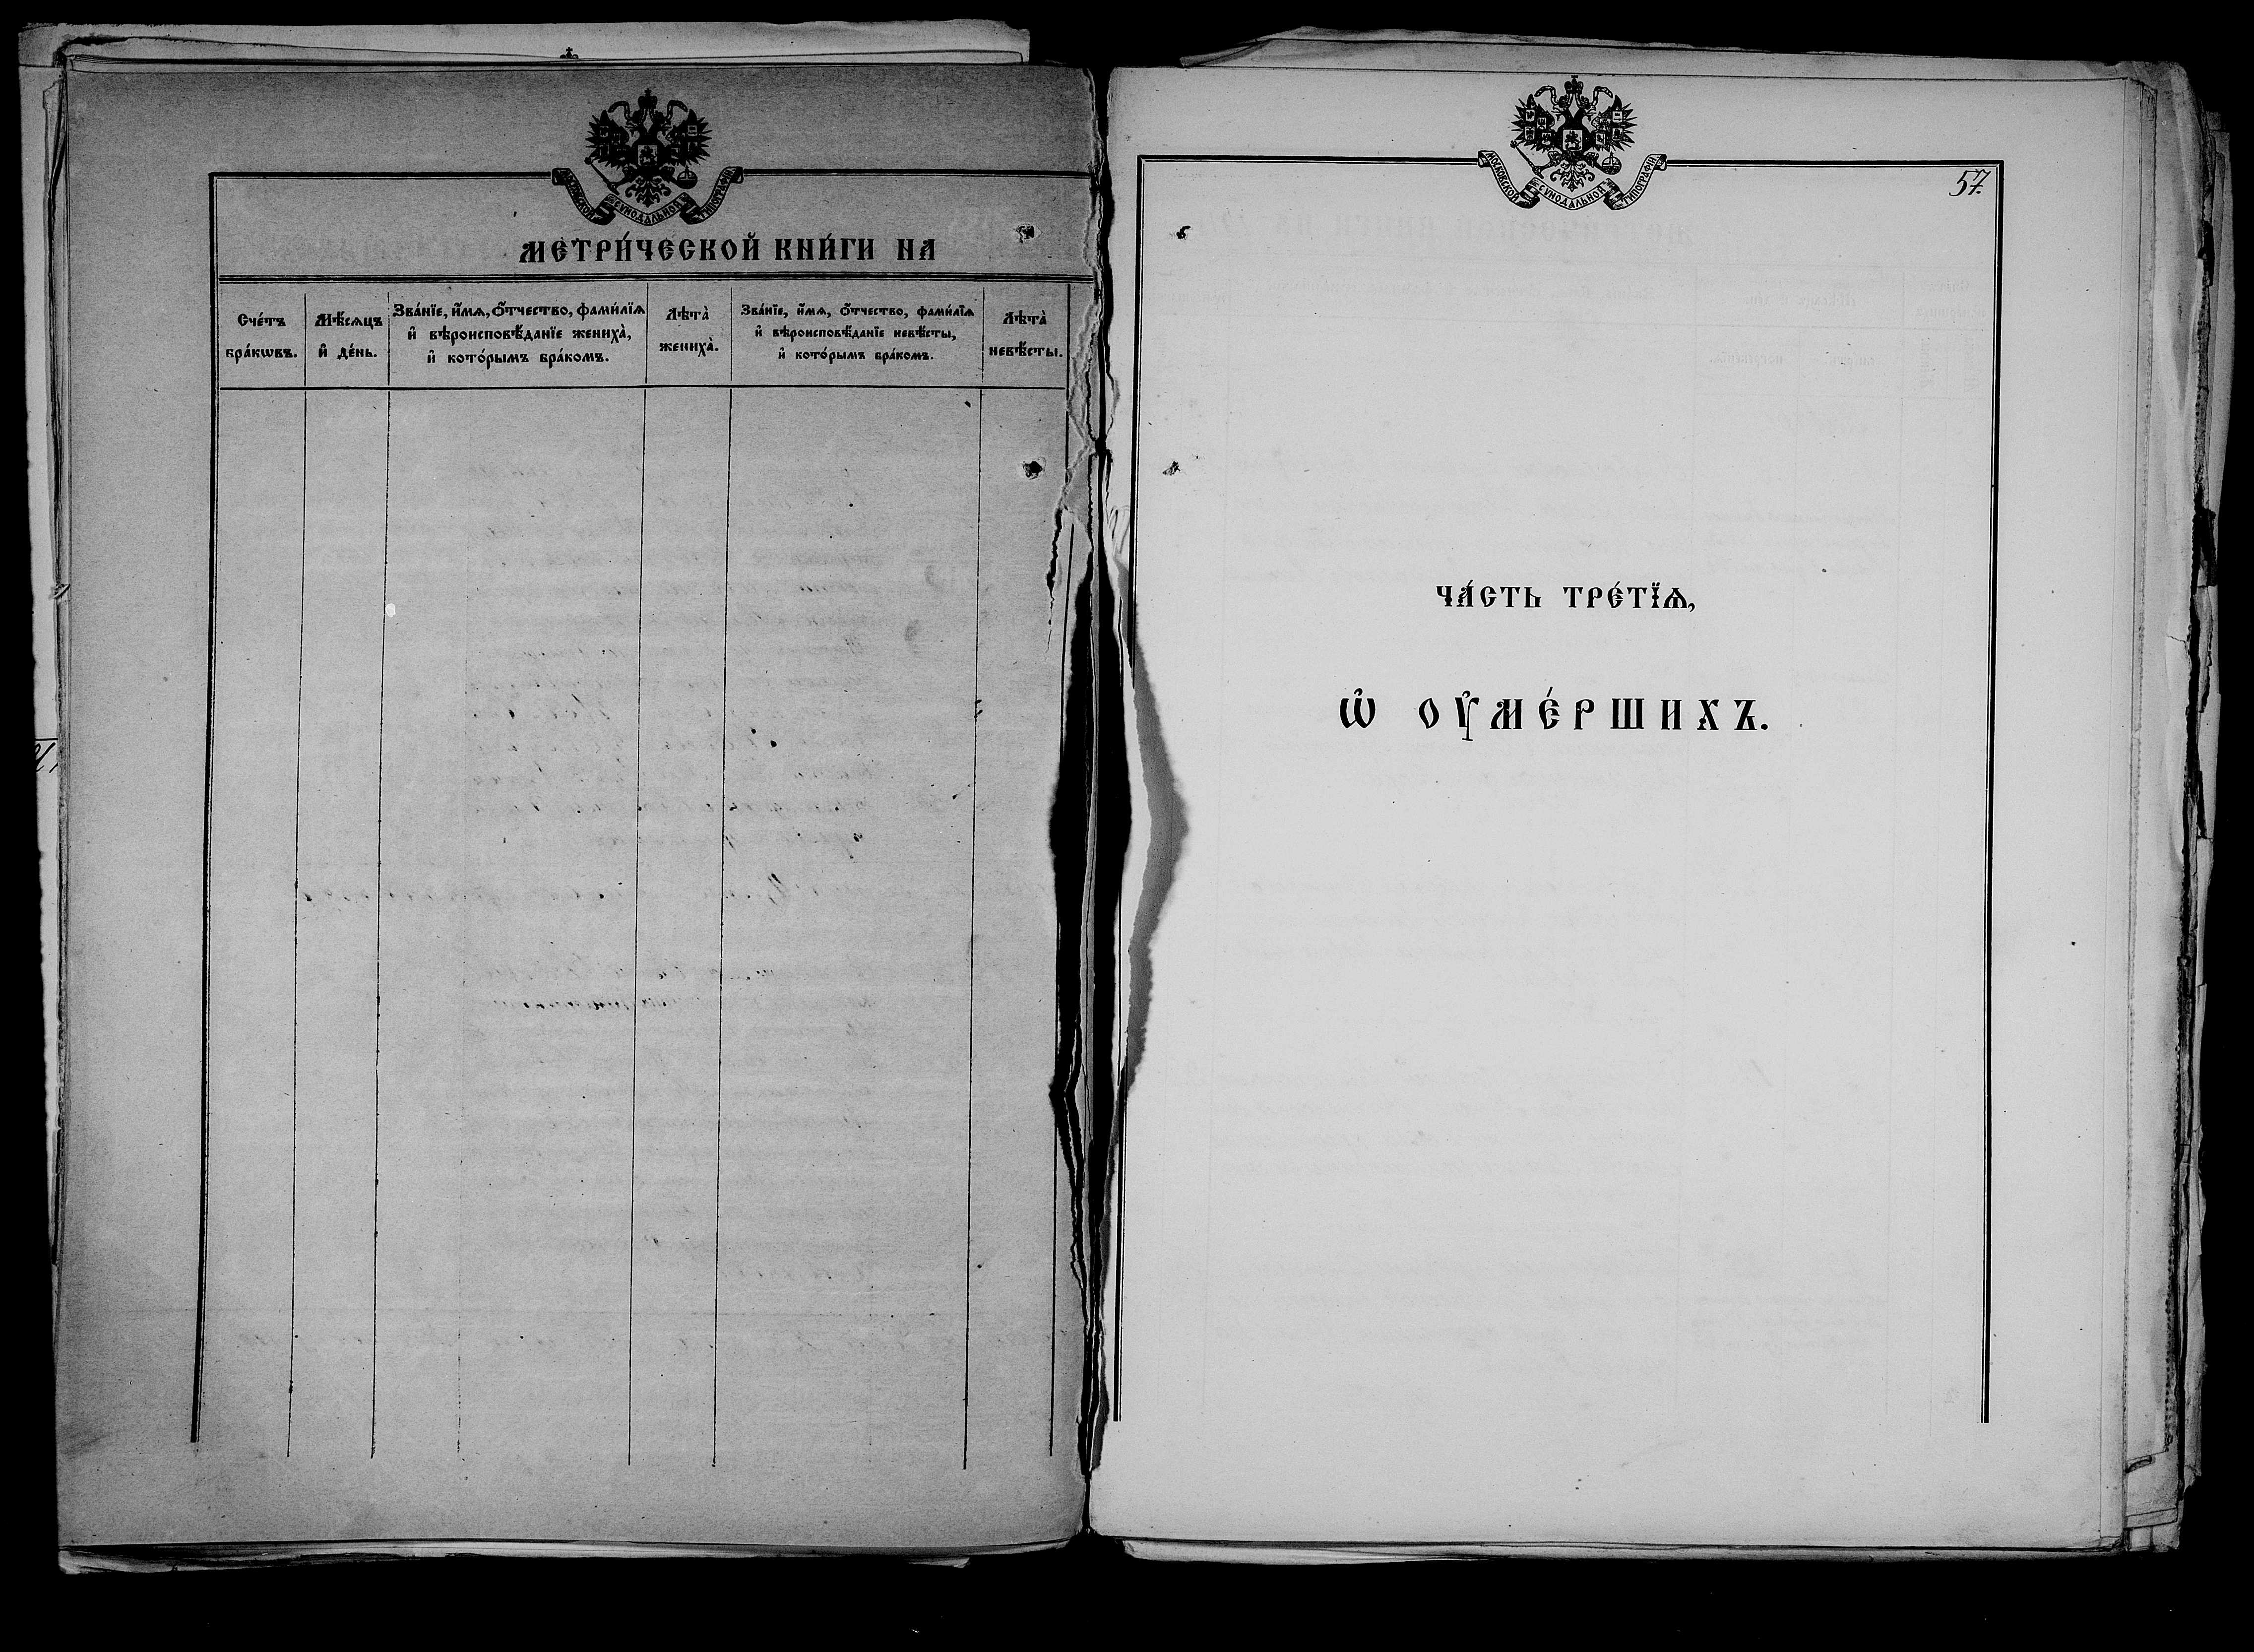 Московской Сѵнодальной Типографіи
метри́ческой кни́ги на
Сче́тъ
бра́кωвъ.
Мѣ́сяцъ
и҆ де́нь.
Зва́нїе, и҆́мѧ, ѻ҆́тчество, фами́лїѧ
и҆ вѣроисповѣ́данїе жениха̀,
и҆ кото́рымъ бра́комъ.
Лѣта̀
жениха̀.
Зва́нїе, и҆́мѧ, ѻ҆́тчество, фами́лїѧ
и҆ вѣроисповѣ́данїе невѣ́сты,
и҆ кото́рымъ бра́комъ.
Лѣта̀
невѣ́сты.
Московской Сѵнодальной Типографіи
57.
ча́сть тре́тїѧ,
ѡ҆ оу҆ме́ршихъ.